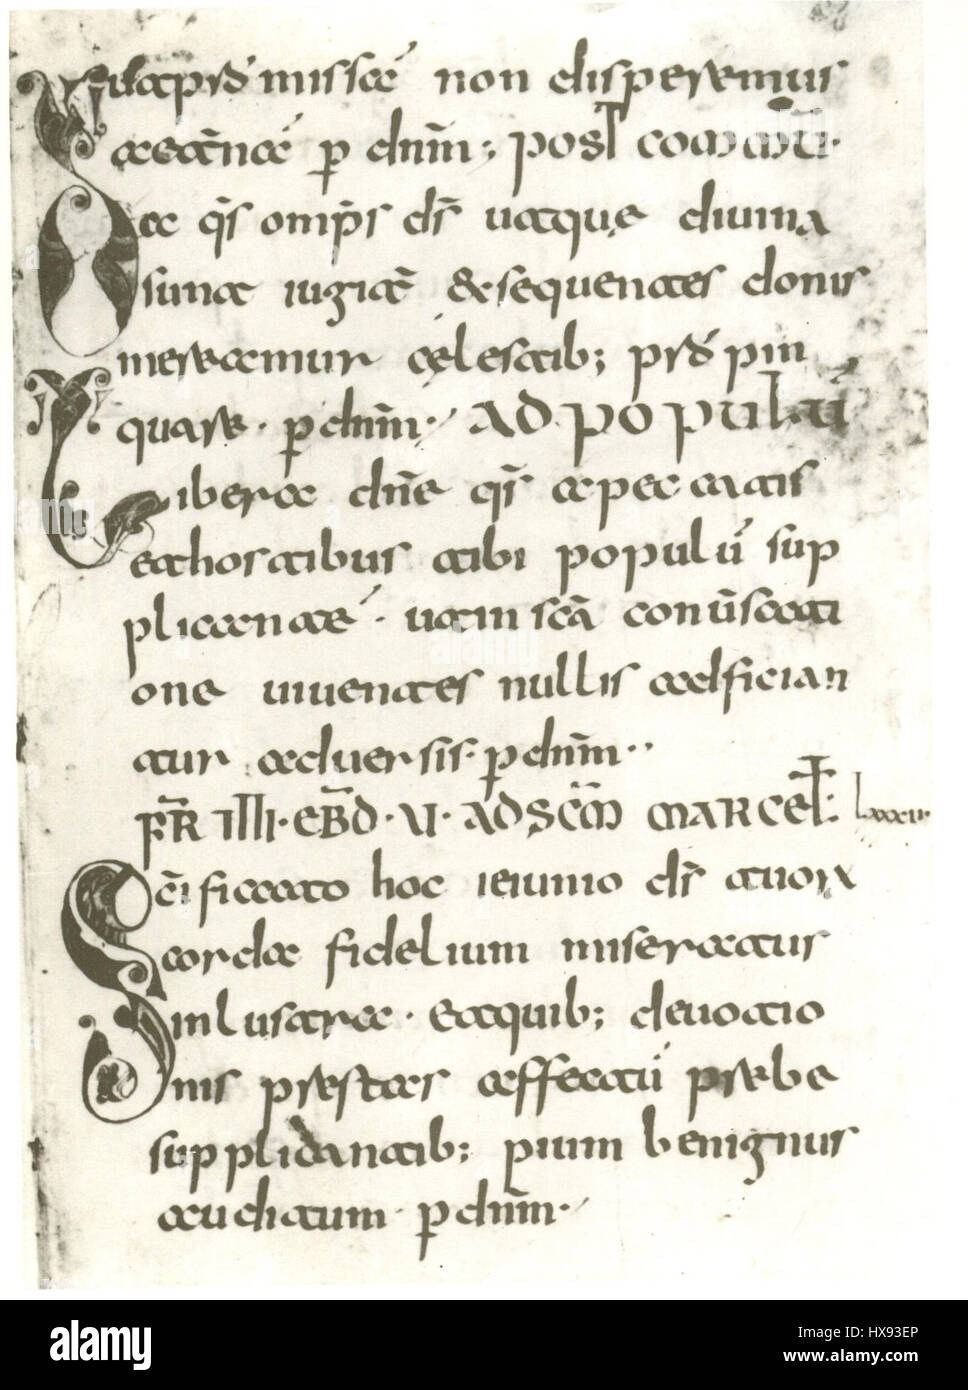 uitae pro missae non disperemus
aeternae p dnm; post commu·
Hec qs omps ds utque diuina
sunt iugiter & sequentes donis
mereamur celestib; pro pin
quare · p dnm · AD POPULU
Libera dne qs a peccatis
et hostibus tibi populu sup
plicante · ut in sca conuersati
one uiuentes nullis adfician
tur aduersis · p dnm ··
FR IIII · EBD · VI · AD SCM MARCEL: Lxxxii
Scificato hoc ieiunio ds tuorx
corda fidelium miseratus
inlustra · et quib; deuotio
nis prestas affectu prebe
supplicantib; pium benignus
auditum · p dnm ·
alamy
alamy
Image ID: HX93EP
www.alamy.com